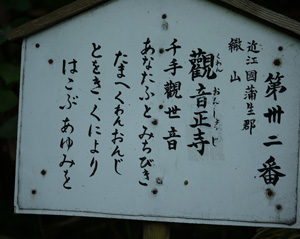 第卅二番
近江国蒲生郡
繖山
觀音正寺
くわんおんしょうじ
千手觀世音
あなたふとみちびき
たまへくわんおんじ
とをきくにより
はこぶあゆみを